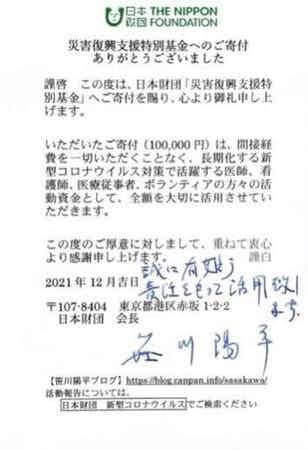 日本 THE NIPPON
財団 FOUNDATION
災害復興支援特別基金へのご寄付
ありがとうございました
謹啓　この度は、日本財団「災害復興支援特
別基金」へご寄付を賜り、心より御礼申し上
げます。
いただいたご寄付（100,000円）は、間接経
費を一切いただくことなく、長期化する新
型コロナウイルス対策で活躍する医師、看
護師、医療従事者、ボランティアの方々の活
動資金として、全額を大切に活用させてい
ただきます。
この度のご厚意に対しまして、重ねて衷心
より感謝申し上げます。　謹白
誠に有難う
2021年12月吉日
責任をもって活用致し
ます。
〒107-8404　東京都港区赤坂1-2-2
日本財団　会長
笹川陽平
【笹川陽平ブログ】https://blog.canpan.info/sasakawa/
活動報告については、
日本財団　新型コロナウイルス でご検索ください